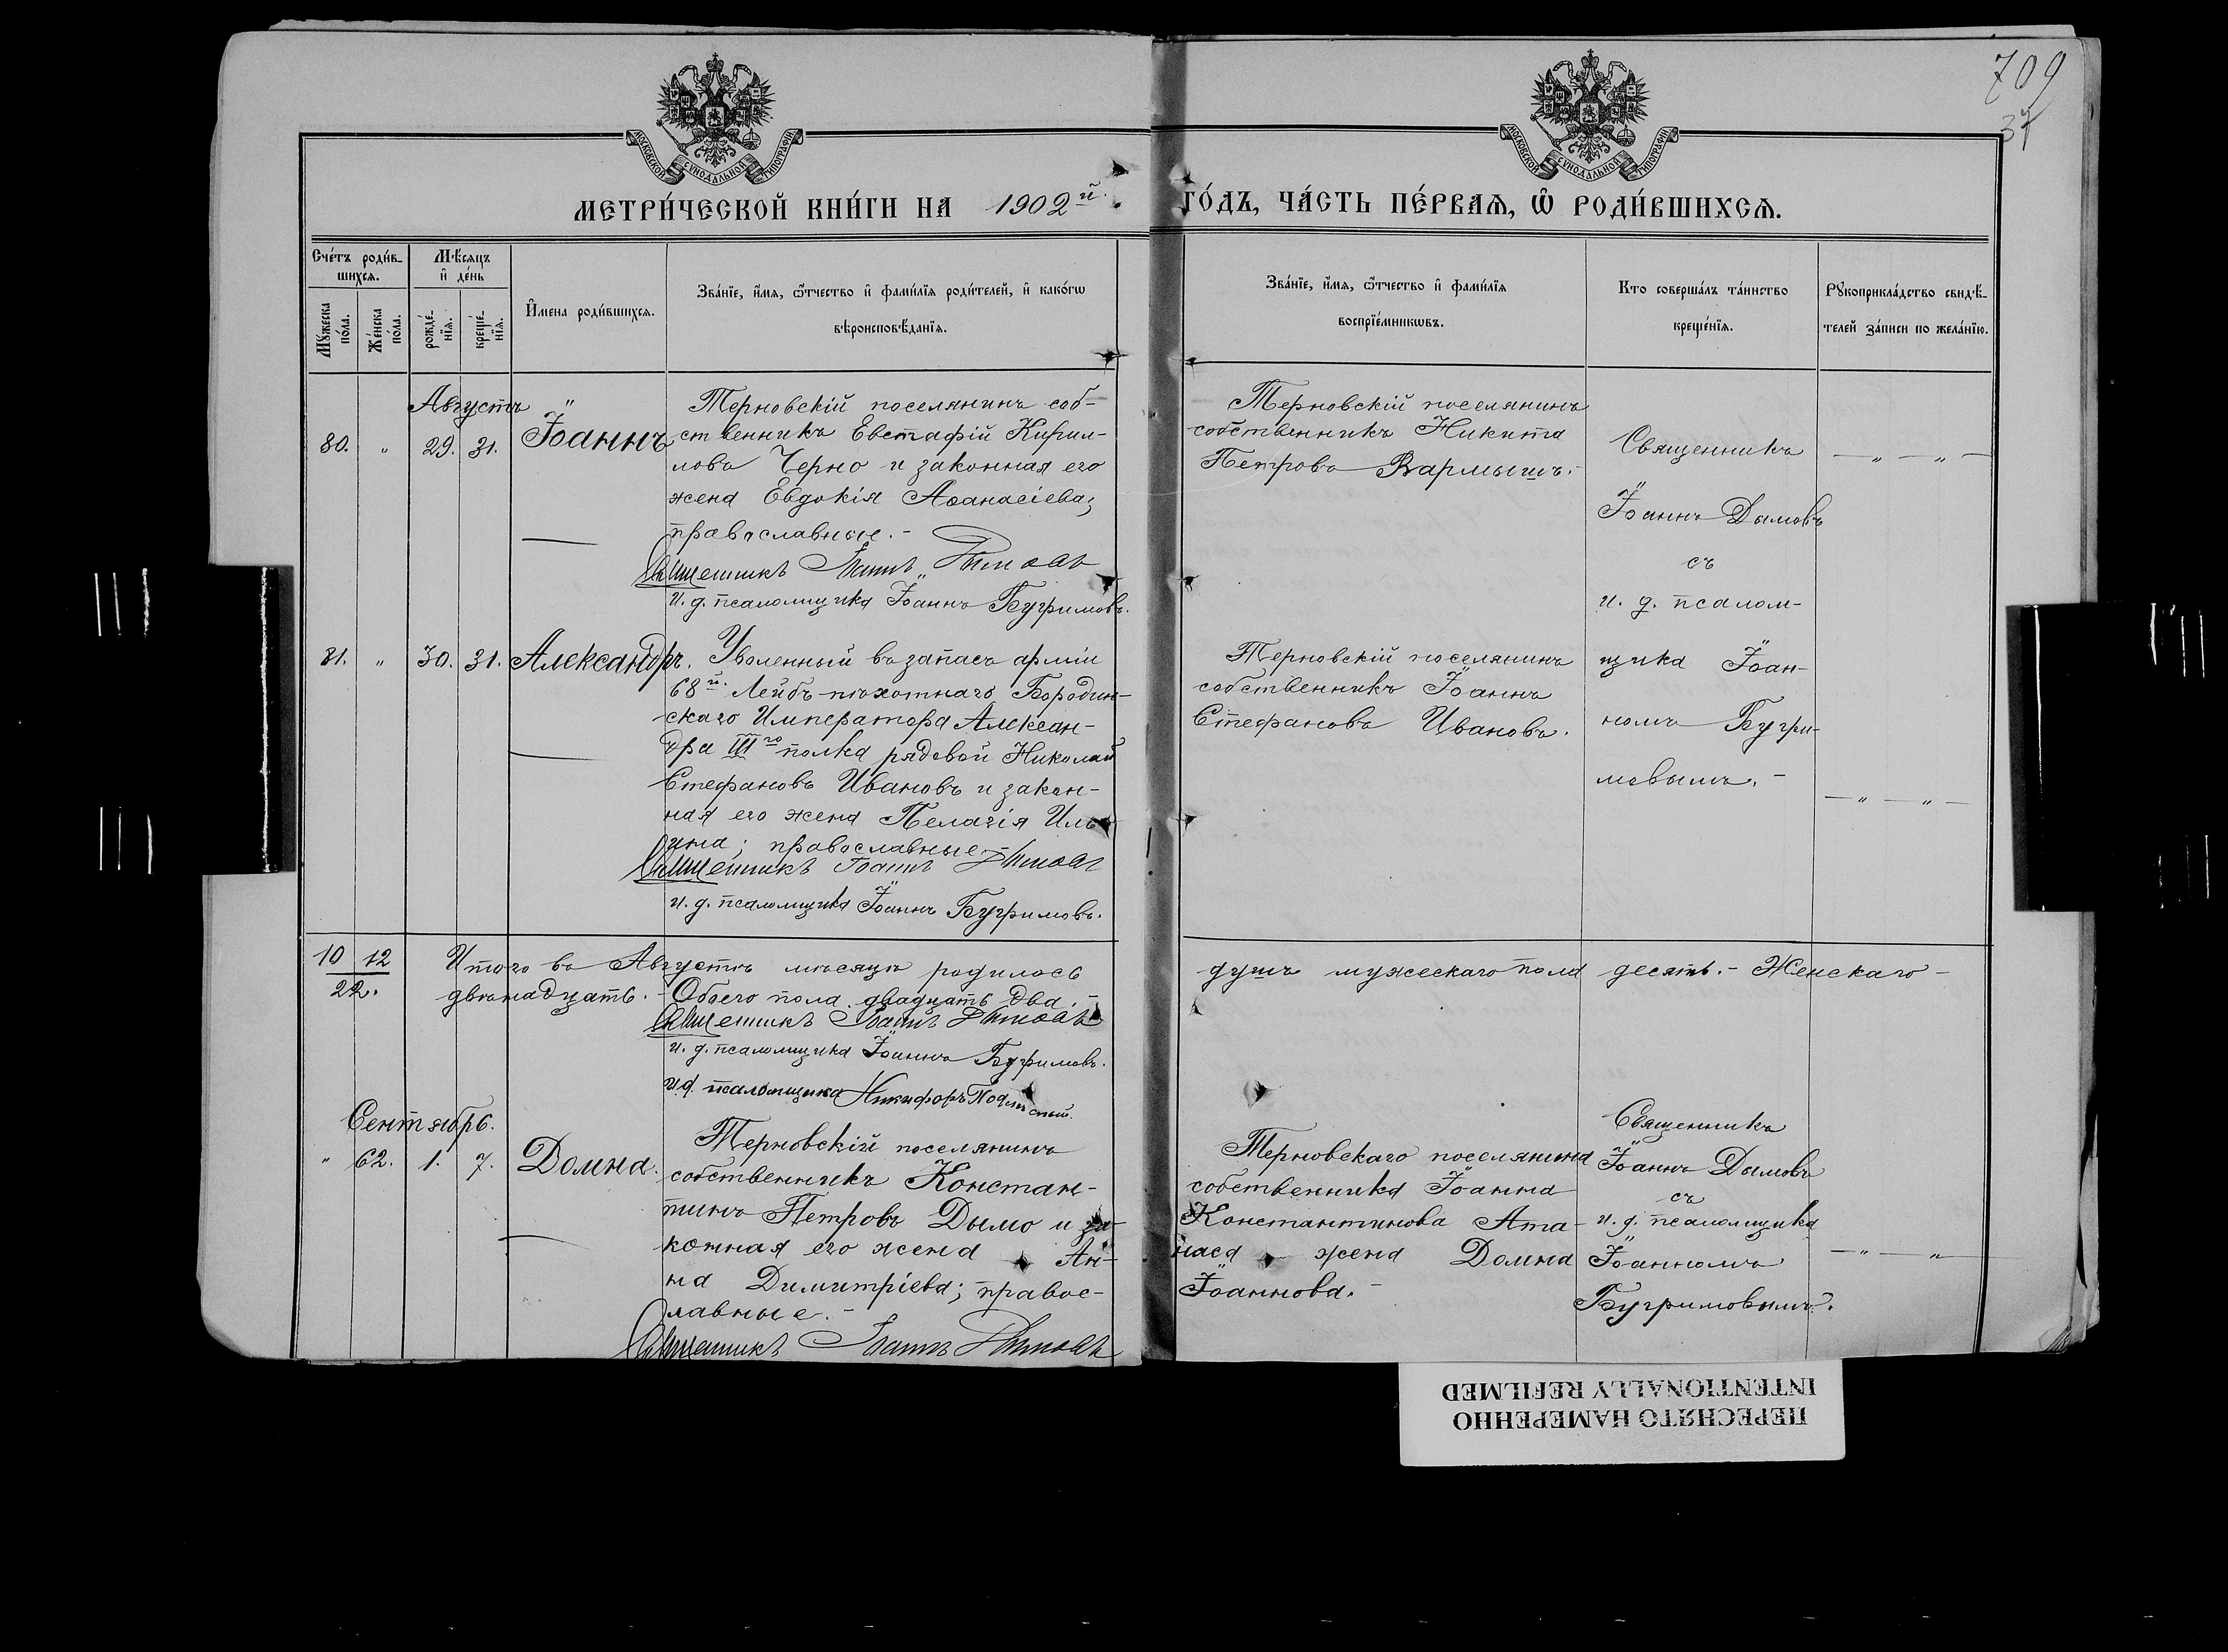 709
37
МОСКОВСКОЙ СѴНОДАЛЬНОЙ ТИПОГРАФІИ
МОСКОВСКОЙ СѴНОДАЛЬНОЙ ТИПОГРАФІИ
МЕТРИ́ЧЕСКОЙ КНИ́ГИ НА 1902й. ГО́ДЪ, ЧА́СТЬ ПЕ́РВАѦ, Ѡ҆ РОДИ́ВШИХСѦ.
Сче́тъ роди́в-
шихсѧ.
Мꙋ́жеска по́ла.
Же́нска по́ла.
Мѣ́сѧцъ
и҆ де́нь
рожде́-
нїѧ.
креще́-
нїѧ.
И҆мена роди́вшихсѧ.
Зва́нїе, и҆́мѧ, ѻ҆́тчество и҆ фами́лїѧ роди́телей, и҆ како́гѡ
вѣроисповѣ́данїѧ.
Зва́нїе, и҆́мѧ, ѻ҆́тчество и҆ фами́лїѧ
воспрїе́мникѡвъ.
Кто соверша́лъ та́инство
креще́нїѧ.
Рꙋкоприкла́дство свидѣ́-
телей за́писи по жела́нїю.
Августъ
80. " 29. 31. Іоаннъ
Терновскій поселянинъ соб-
ственникъ Евстафій Кирил-
ловъ Черно и законная его
жена Евдокія Аѳанасіева;
православные.-
Священникъ Іоаннъ Дымовъ
и. д. псаломщика Іоаннъ Бугримовъ.
Терновскій поселянинъ
собственникъ Никита
Петровъ Вармышъ.-
Священникъ
Іоаннъ Дымовъ
съ
и. д. псалом-
щика Іоан-
номъ Бугри-
мовымъ.-
— " — " —
81. " 30. 31. Александръ.
Уволенный въ запасъ арміи
68й. Лейбъ-пѣхотнаго Бородин-
скаго Императора Алексан-
дра IIIго полка рядовой Николай
Стефановъ Ивановъ и закон-
ная его жена Пелагія Иль-
ина; православные.-
Священникъ Іоаннъ Дымовъ
и. д. псаломщика Іоаннъ Бугримовъ.
Терновскій поселянинъ
собственникъ Іоаннъ
Стефановъ Ивановъ.
— " — " —
10 12
22.
Итого въ Августѣ мѣсяцѣ родилось душъ мужескаго пола десять.- Женскаго-
двѣнадцать.- Обоего пола двадцать два.-
Священникъ Іоаннъ Дымовъ
и. д. псаломщика Іоаннъ Бугримовъ.
и. д. псаломщика Никифоръ
Сентябрь.
" 62. 1. 7. Домна.
Терновскій поселянинъ
собственникъ Констан-
тинъ Петровъ Дымо и за-
конная его жена Ан-
на Димитріева; правос-
лавные.-
Священникъ Іоаннъ Дымовъ
Терновскаго поселянина
собственника Іоанна
Константинова Ата-
наса жена Домна
Іоаннова.-
Священникъ
Іоаннъ Дымовъ
съ
и. д. псаломщика
Іоанномъ
Бугримовымъ.
— " — "
ПЕРЕСНЯТО НАМЕРЕННО
INTENTIONALLY REFILMED